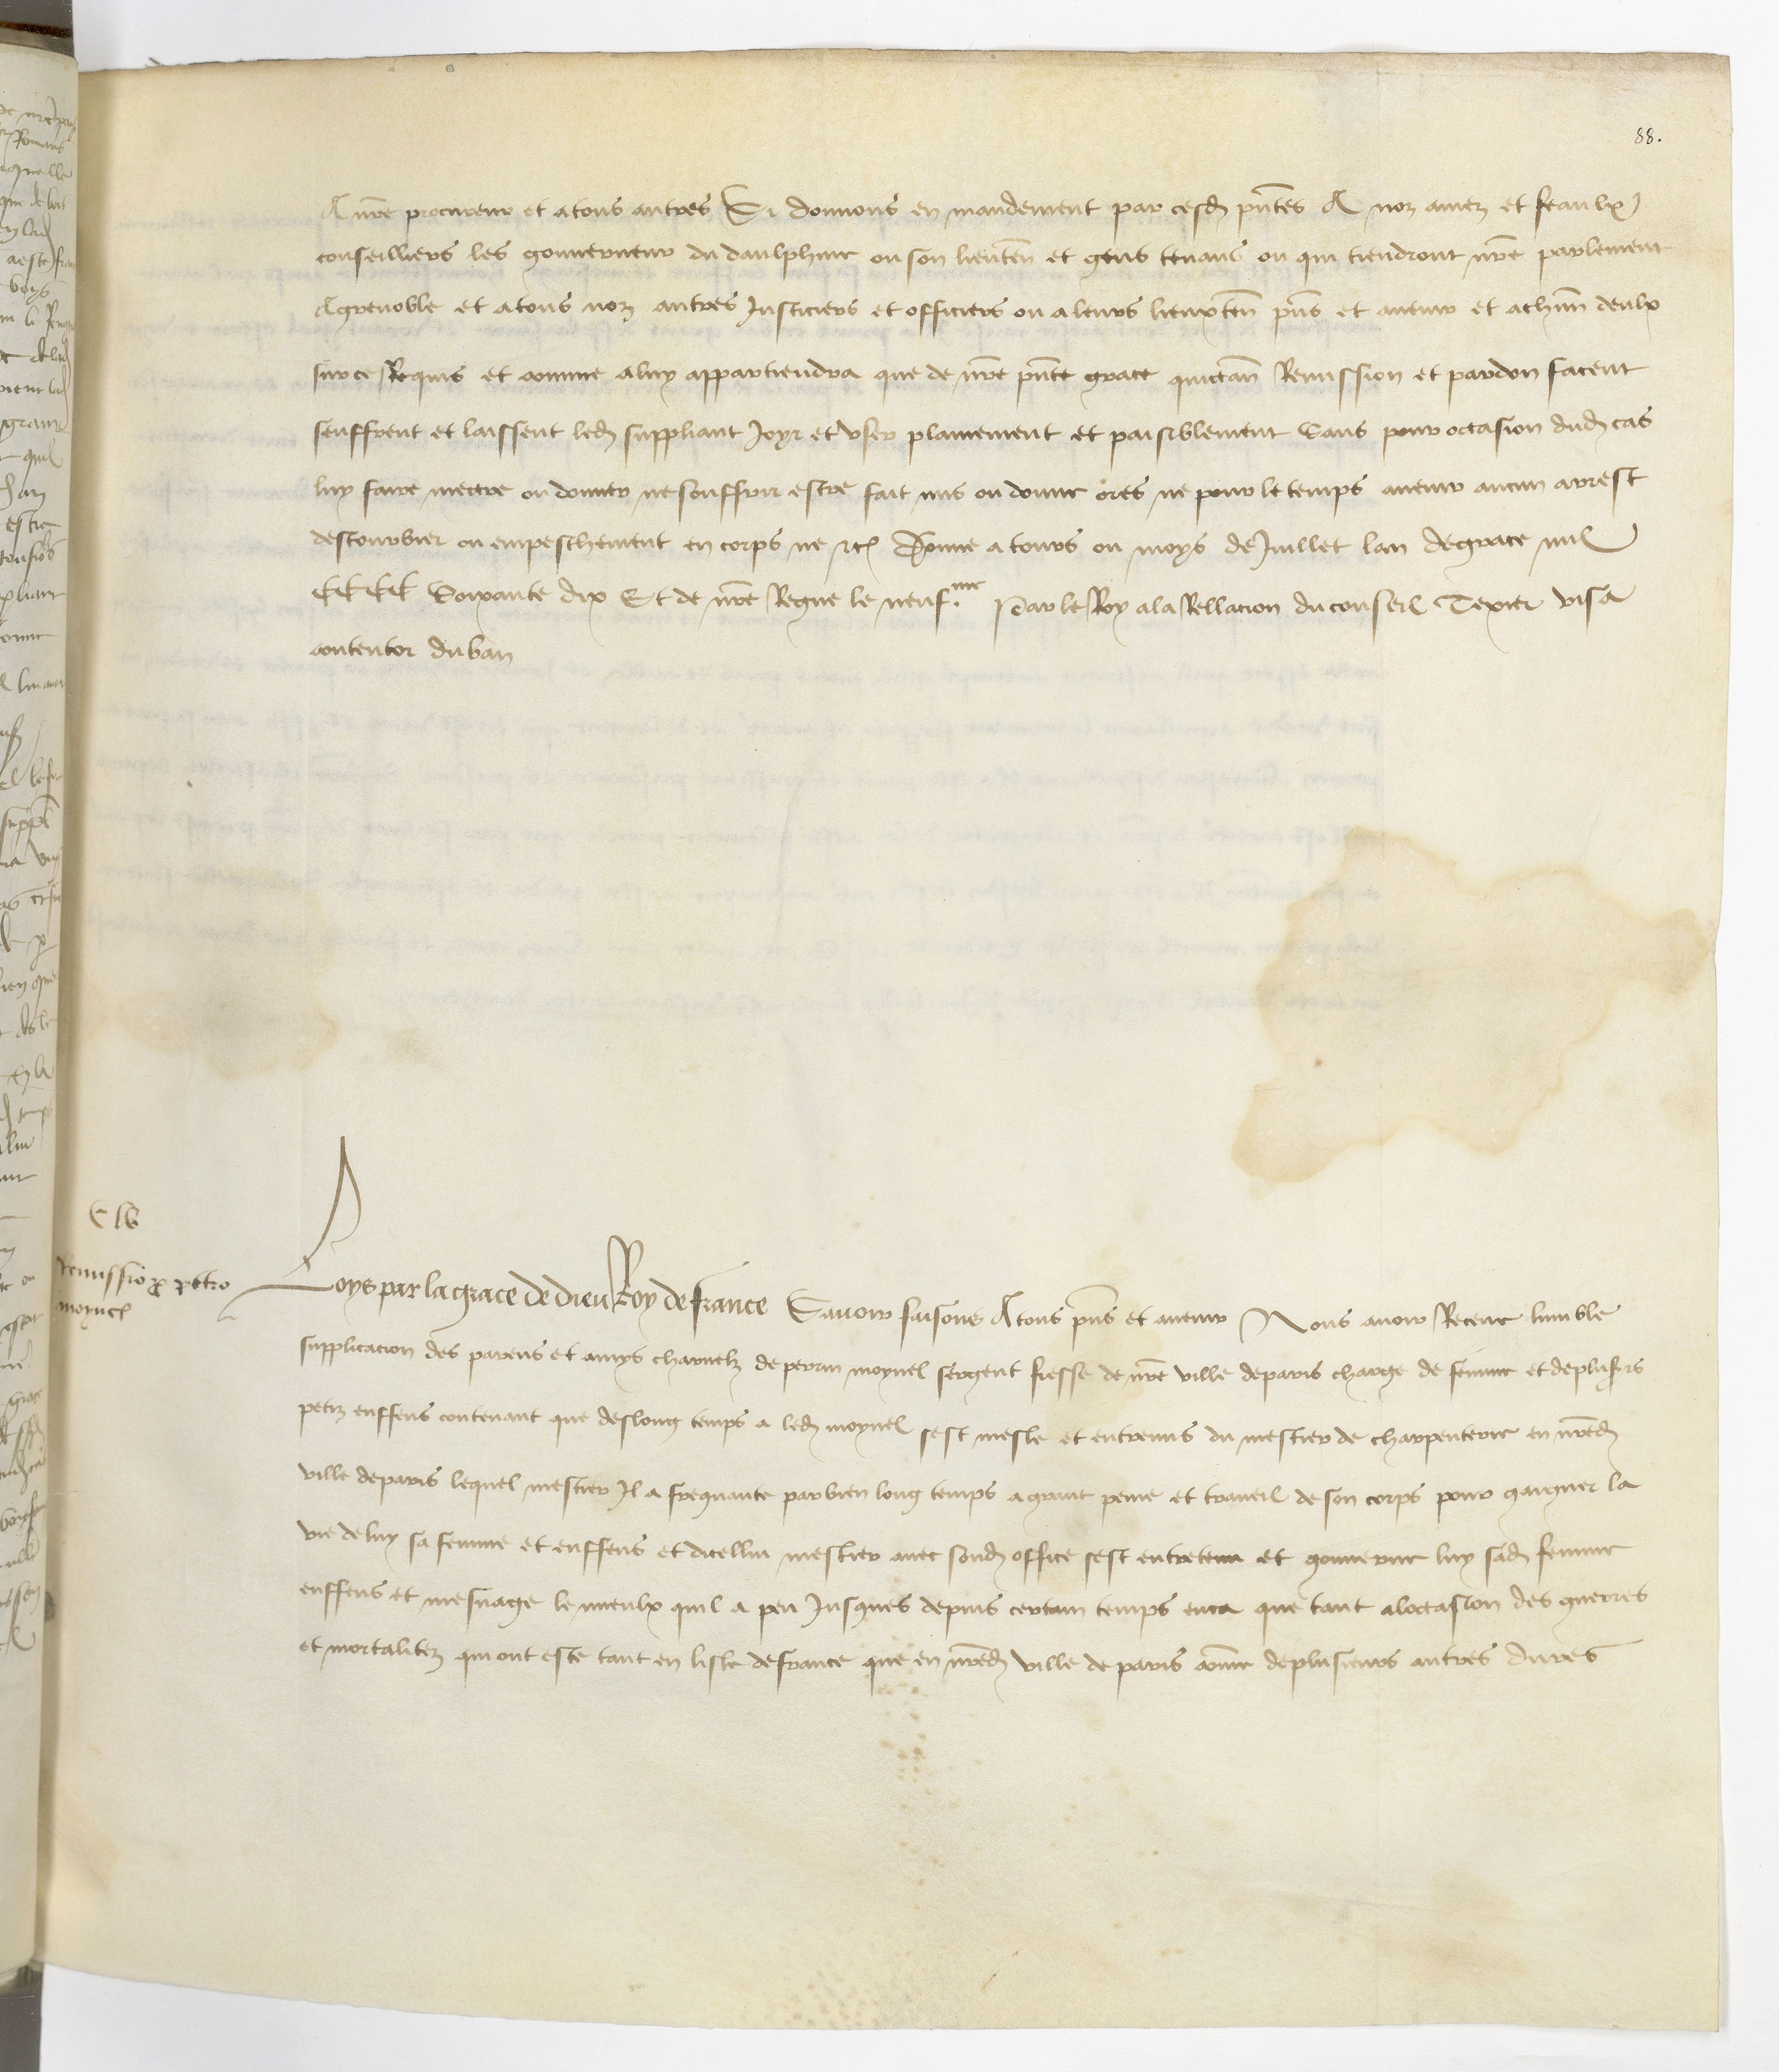 88.
A nre procureur et a tous autres Si donnons en mandement par cesd pntes A noz amez et feaulx
conseilliers les gouverneur du daulphine ou son lieuten et gens tenans ou qui tiendront nre parlement
A grenoble et a tous noz autres Justiciers et officiers ou a leurs lieuxten pns et avenir et a chun deulx
sur ce Requis et comme a luy appartiendra que de nre pnte grace quictan Remission et pardon facent
seuffrent et laissent led suppliant Joyr et user plainement et paisiblement Sans pour occasion dud cas
luy faire mectre ou donner ne souffrir estre fait mis ou donne ores ne pour le temps avenir aucun arrest
destourbier ou empeschement en corps ne etc Donne a tours ou moys de Juillet lan de grace mil
CCCC Soixante dix Et de nre Regne le neuf.me Par le Roy a la Rellacion du conseil Texier visa
contentor duban
Remissio p petro
moynel
Loys par la grace de dieu Roy de france Savoir faisons A tous pns et avenir Nous avoir Receue lumble
supplicacion des parens et amys charnelz de perrin moynel sergent fieffe de nre ville de paris charge de femme et de plusrs
petiz enffens contenant que des long temps a led moynel sest mesle et entremis du mestier de charpenterie en nred
ville de paris lequel mestier Il a frequante par bien long temps a grant peine et traveil de son corps pour gaigner la
vie de luy sa femme et enffens et dicellui mestier avec sond office sest entretenu et gouverne luy sad femme
enffens et mesnage le mieulx quil a peu Jusques depuis certain temps enca que tant a loccasion des guerres
et mortalitez qui ont este tant en lisle de france que en nred ville de paris comme de plusieurs autres dures